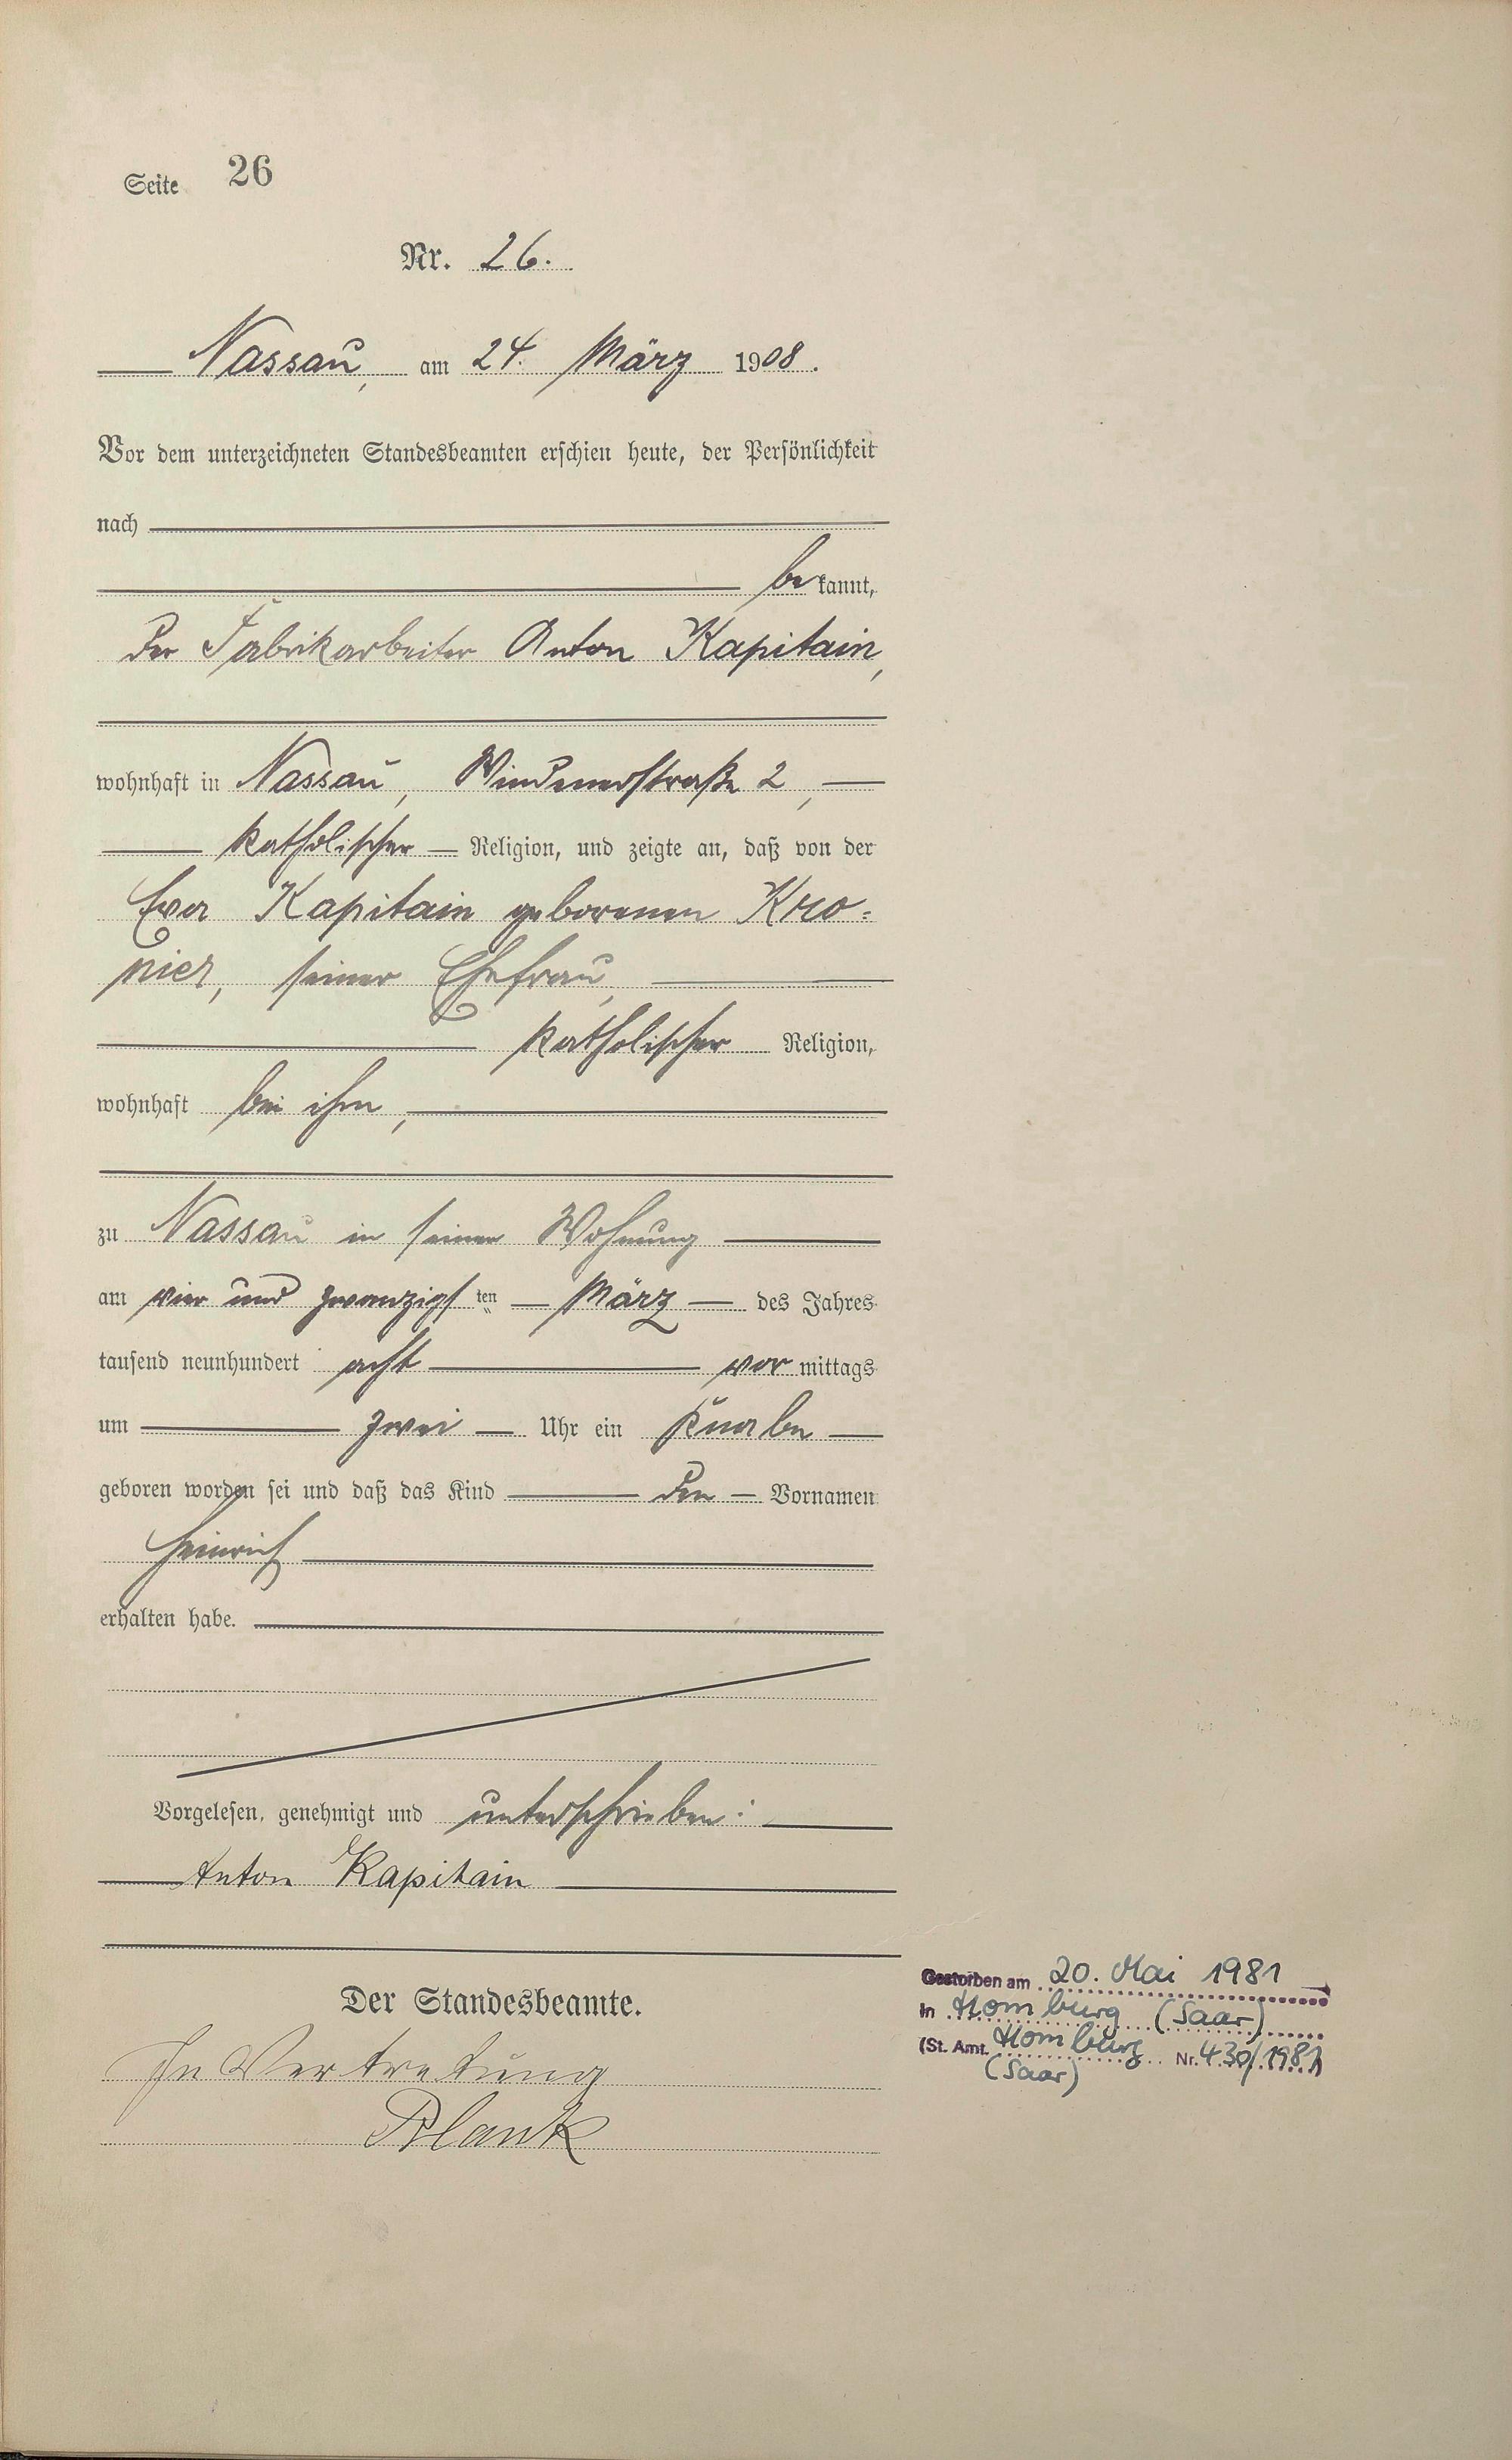 Seite 26
Nr. 26.
Nassau, am 24. März 1908.
Vor dem unterzeichneten Standesbeamten erschien heute, der Persönlichkeit
nach
bekannt,
der Fabrikarbeiter Anton Kapitain,
wohnhaft in Nassau, Windenerstraße 2,
katholischer Religion, und zeigte an, daß von der
Eva Kapitain geborenen Kro=
nier, seiner Ehefrau,
katholischer Religion,
wohnhaft bei ihm,
zu Nassau in seiner Wohnung
am vier und zwanzigsten März des Jahres
tausend neunhundert acht vormittags
um zwei Uhr ein Knabe
geboren worden sei und daß das Kind den Vornamen
Heinrich
erhalten habe.
Vorgelesen, genehmigt und unterschrieben:
Anton Kapitain
Der Standesbeamte.
In Vertretung
Blank
Gestorben am 20. Mai 1981
in Homburg (Saar)
(St. Amt. Homburg Nr. 430/1981)
(Saar)